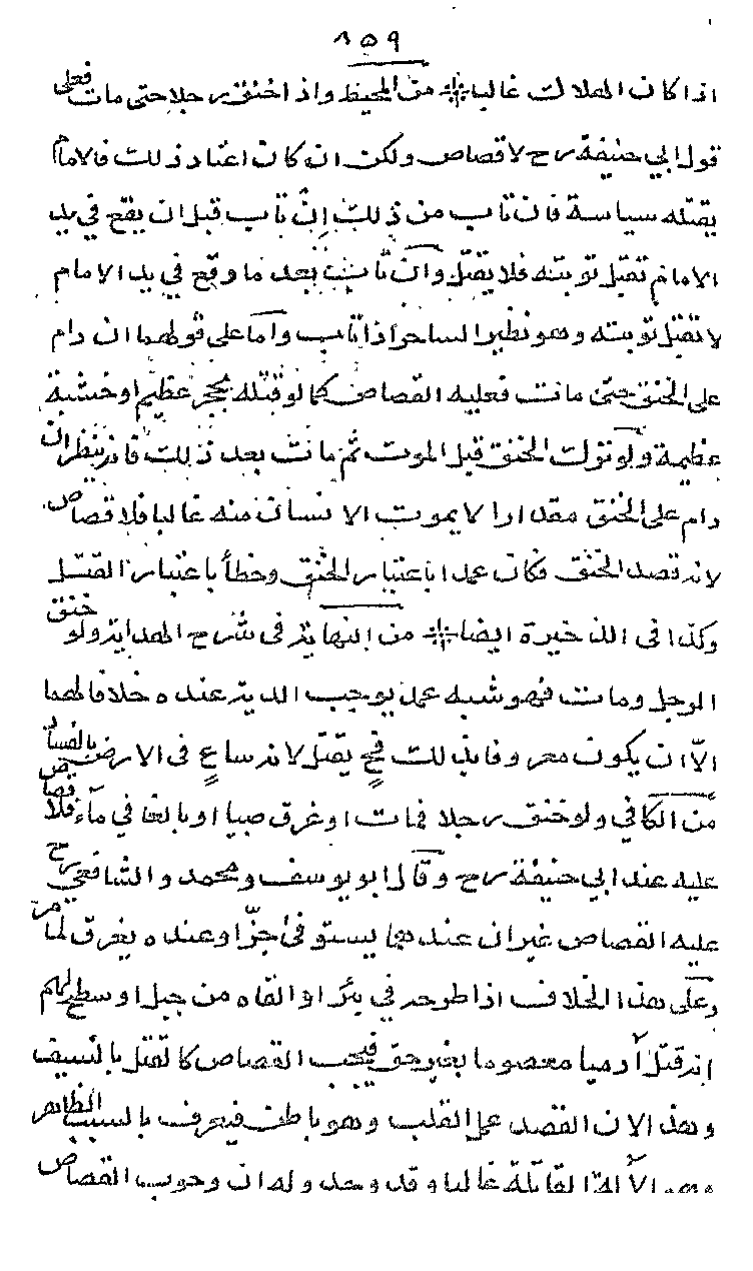 ٨٥٩
اذا كان الهلاك غالبا من المحيط واذا خنق رجلا حتى مات فعلى
قول ابي حنيفة رح لا قصاص ولكن ان كان اعتاد ذلك فالامام
يقتله سياسة فان تاب من ذلك ان تاب قبل ان يقع في يد
الامام تقبل توبته فلا يقتل وان تاب بعد ما وقع في يد الامام
لا تقبل توبته وهو نظير الساحر اذا تاب واما على قولهما ان دام
على الخنق حتى مات فعليه القصاص كما لو قتله بحجر عظيم او خشبة
عظيمة ولو ترك الخنق قبل الموت ثم مات بعد ذلك فانه ينظر ان
دام على الخنق مقدارا لا يموت الانسان منه غالبا فلا قصاص
لانه قصد الخنق فكان عمدا باعتبار الخنق وخطأ باعتبار القتل
وكذا في الذخيرة ايضا من النهاية في شرح الهداية ولو خنق
الرجل ومات فهو شبه عمد يوجب الدية عنده خلافا لهما
الا ان يكون معروفا بذلك فح يقتل لانه ساع في الارض بالفساد
من الكافي ولو خنق رجلا فمات او غرق صبيا او بالغا في ماء فلا قصاص
عليه عند ابي حنيفة رح وقال ابو يوسف ومحمد والشافعي رح
عليه القصاص غير ان عندهما يستوفى جزا وعنده يغرق لما مر
وعلى هذا الخلاف اذا طرحه في بئر او القاه من جبل او سطح لهم
انه قتل آدميا معصوما بغير حق فيجب القصاص كالقتل بالسيف
وهذا لان القصد عمل القلب وهو باطن فيعرف بالسبب الظاهر
وهو الآلة القاتلة غالبا وقد وجد وله ان وجوب القصاص